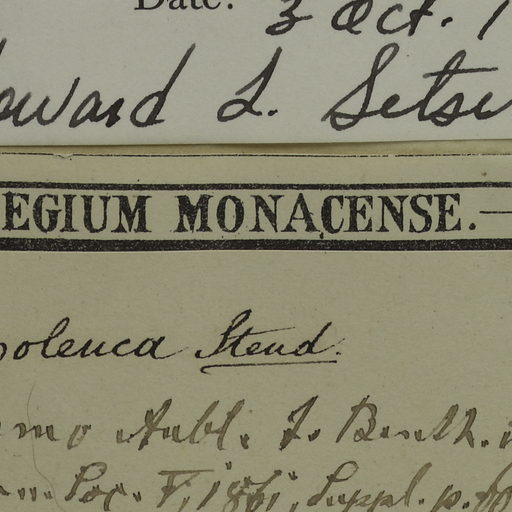 Date: 3 Oct. 1
oward L. Setse
EGIUM MONACENSE.
oleuca Steud.
Aubl. f. Benth.
Soc. V, 1861, Suppl. p.